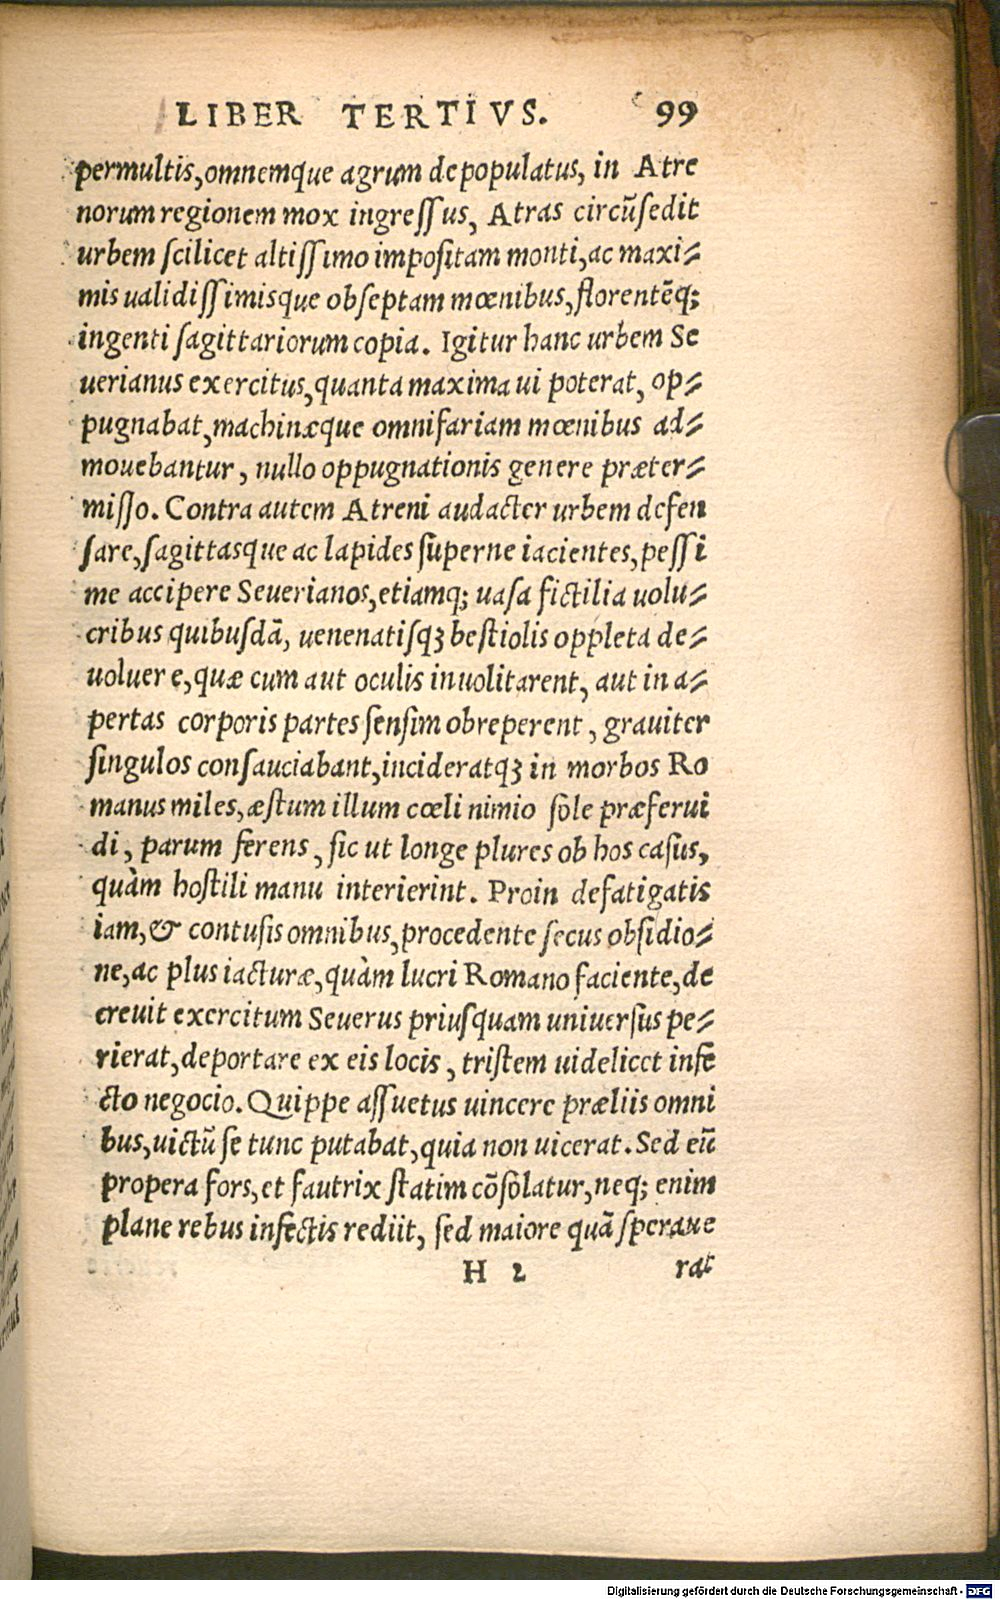 LIBER TERTIVS. 99
permultis, omnemque agrum depopulatus, in Atre
norum regionem mox ingreſſus, Atras circũſedit
urbem ſcilicet altiſſimo impoſitam monti, ac maxi⸗
mis ualidiſſimisque obſeptam mœnibus, florentẽq;
ingenti ſagittariorum copia. Igitur hanc urbem Se
uerianus exercitus, quanta maxima ui poterat, op⸗
pugnabat, machinæque omnifariam mœnibus ad⸗
mouebantur, nullo oppugnationis genere præter⸗
miſſo. Contra autem Atreni audacter urbem defen
ſare, ſagittasque ac lapides ſuperne iacientes, peſſi
me accipere Seuerianos, etiamq; uaſa fictilia uolu⸗
cribus quibuſdã, uenenatiſqꝫ beſtiolis oppleta de⸗
uoluere, quæ cum aut oculis inuolitarent, aut in a⸗
pertas corporis partes ſenſim obreperent, grauiter
ſingulos conſauciabant, incideratqꝫ in morbos Ro
manus miles, æſtum illum cœli nimio ſole præferui
di, parum ferens, ſic ut longe plures ob hos caſus,
quàm hoſtili manu interierint. Proin defatigatis
iam, & contuſis omnibus, procedente ſecus obſidio⸗
ne, ac plus iacturæ, quàm lucri Romano faciente, de
creuit exercitum Seuerus priuſquam uniuerſus pe⸗
rierat, deportare ex eis locis, triſtem uidelicet infe
cto negocio. Quippe aſſuetus uincere præliis omni
bus, uictũ ſe tunc putabat, quia non uicerat. Sed eũ
propera fors, et fautrix ſtatim cõſolatur, neq; enim
plane rebus infectis rediit, ſed maiore quã ſperaue
H 2 rat
Digitalisierung gefördert durch die Deutsche Forschungsgemeinschaft - DFG